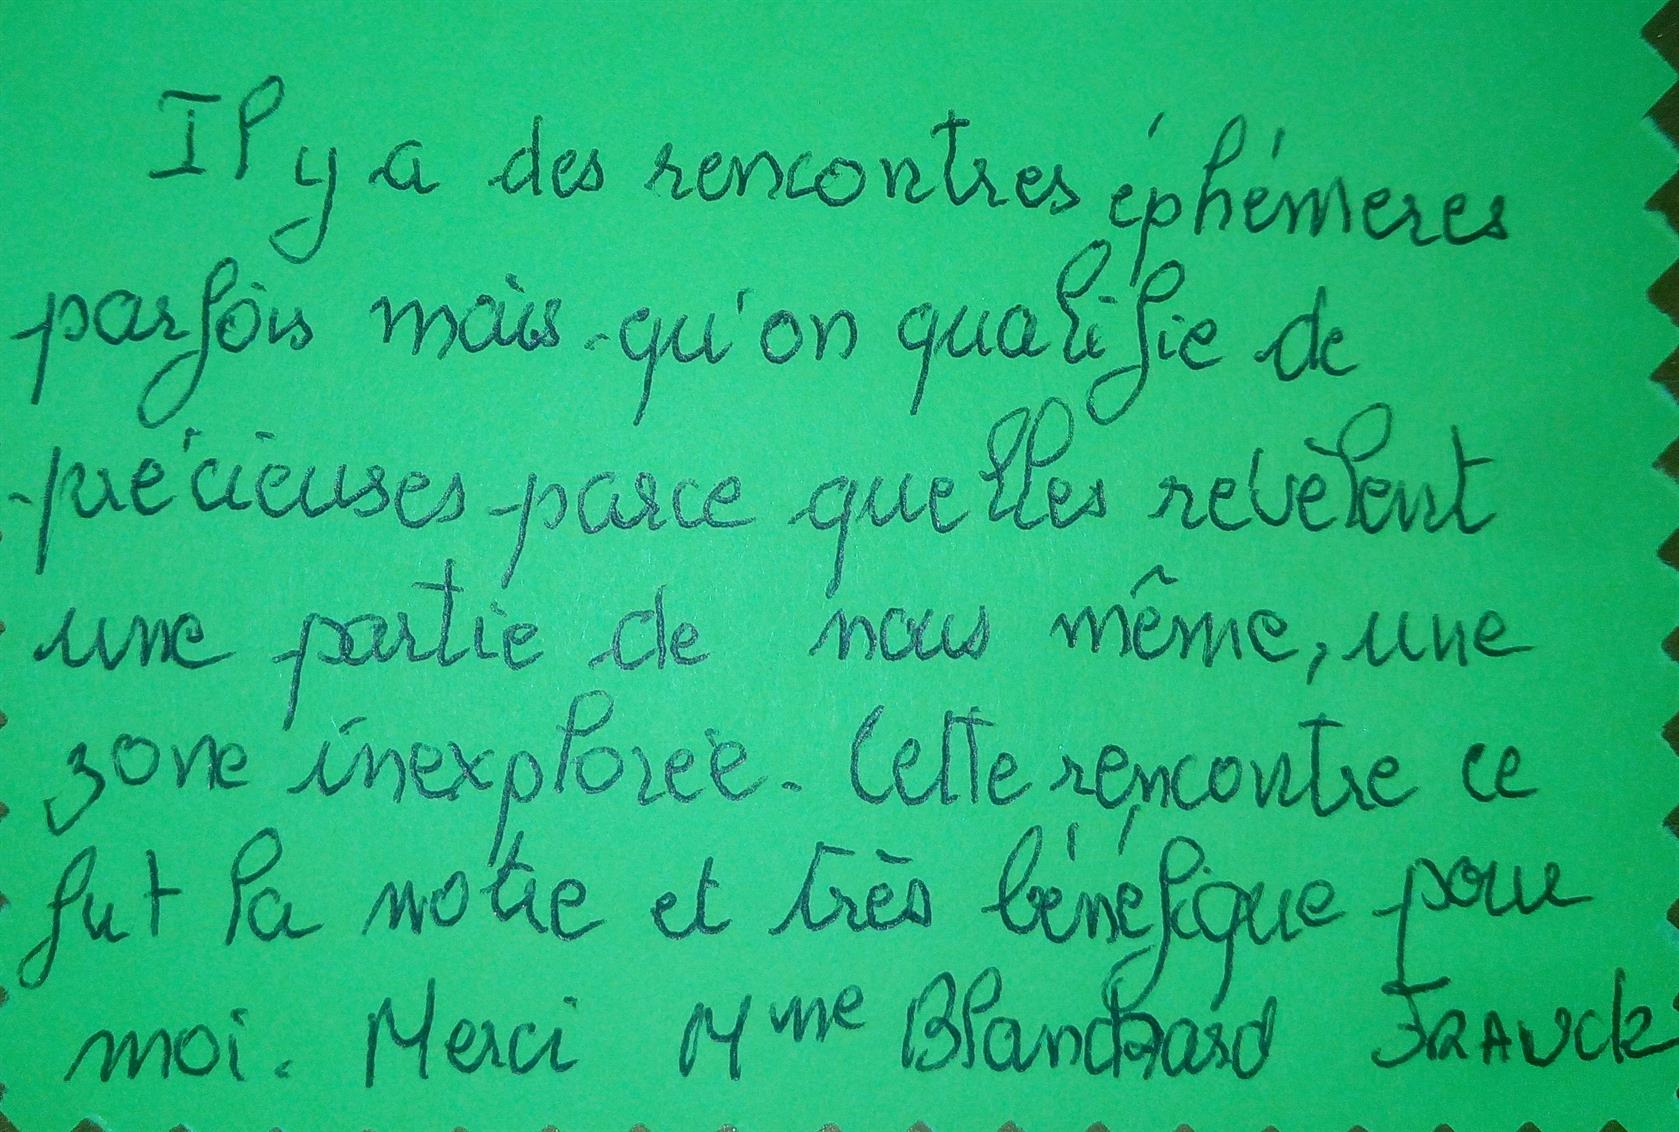 Il y a des rencontres éphémeres
parfois mais qu'on qualifie de
précieuses parce quelles révèlent
une partie de nous même, une
zone inexplorée. Cette rencontre ce
fut la notre et très bénéfique pour
moi. Merci Mme Blanchard FRANCK